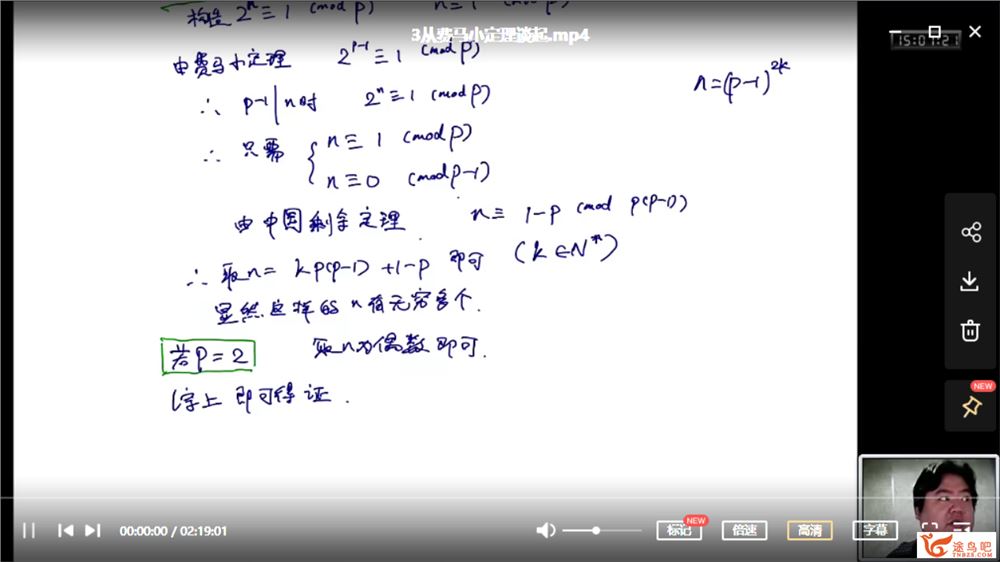 构造 2ⁿ≡1 (mod p) n≡1 (mod p)
3从费马小定理谈起.mp4
15:07:21
由费马小定理 2^{p-1}≡1 (mod p)
n=(p-1)^{2k}
∴ p-1|n时 2ⁿ≡1 (mod p)
∴ 只需 { n≡1 (mod p)
n≡0 (mod p-1)
由中国剩余定理 n≡ 1-p (mod p(p-1))
∴ 取n= kp(p-1)+1-p 即可 (k∈N*)
显然这样的n有无穷多个.
若p=2 取n为偶数即可.
综上 即可得证.
NEW
00:00:00 / 02:19:01
标记
NEW
倍速
高清
字幕
途鸟吧
TNBZS.COM